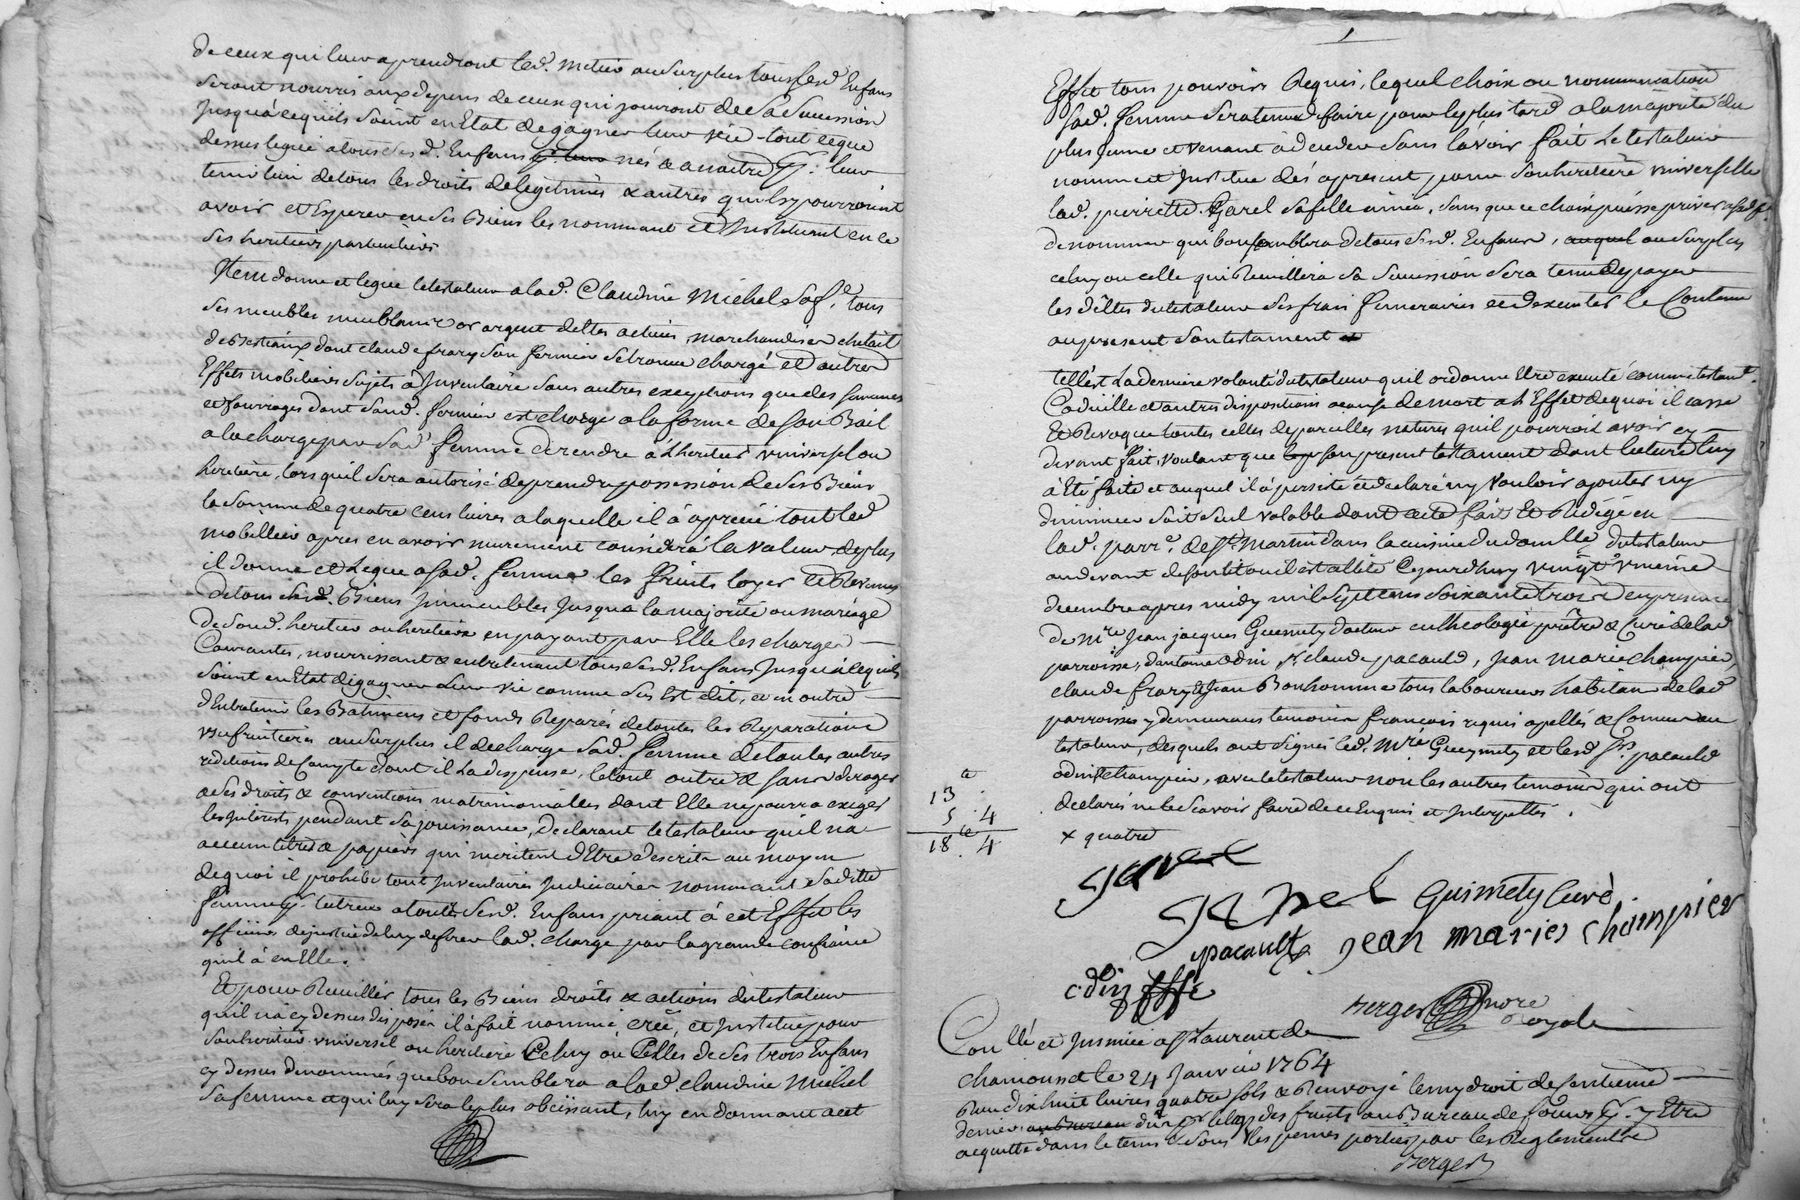 de ceux qui leur aprendront led. metier au surplus tous sesd. Enfans
seront nourris aux depens de ceux qui jouiront de sa succession
jusqu'à ce qu'ils soient en Etat de gagner leur vie - tout ce que
dessus legué a tous sesd. Enfans nés & a naitre pr. leur
tenir lieu de tous les droits de legitimes & autres qu'ils y pourroient
avoir et Esperer en ses Biens les nommant et Instituant en ce
ses heritiers particuliers
Item donne et legue le testateur a lad. Claudine Michel sa fe. tous
ses meubles meublants or argent dettes actives, marchandises cheptait
de Bestiaux dont claude frary son fermier se trouve chargé et autres
Effets mobiliers sujets a Inventaire sans autres exceptions que des semences
et fourrages dont sond. fermier est chargé a la forme de son Bail
a la charge par sad. femme de rendre a l'heritier universel ou
heritiere, lorsquil sera autorisé de prendre possession de ses Biens
la somme de quatre cens livres a laquelle il a aprecié tout led
mobillier apres en avoir murement considéré la valeur, de plus
il donne et Legue a sad. femme les fruits loyer et Revenus
de tous sesd. Biens Immeubles jusqua la majorité ou mariage
de sond. heritier ou heritiere en payant par Elle les charges
Courantes, nourrissant & entretenant tous sesd. Enfans jusqu'à ce quils
soient en Etat de gagner Leur vie comme dus Est dit, et en outre
d'Entretenir les Batimens et fonds Reparés de toutes les Reparations
usufruitieres au surplus il decharge sad. femme de toutes autres
redditions de Compte dont il La dispense, le tout outre & sans deroger
a ses droits & conventions matrimonialles dont Elle ne pourra exiger
les Interests pendant sa jouissance, Declarant le testateur qu'il n'a
aucun titres & papiers qui meritent d'Etre descrits au moyen
de quoi il prohibe tout Inventaires Judiciaires nommant saditte
femme pr. tutrice a tous sesd. Enfans priant à cet Effet les
officiers de justice de luy deferer lad. charge par la grande confiance
quil à en Elle.
Et pour Recueillir tous les Biens droits & actions du testateur
quil n'a cy dessus disposés il a fait nommé, créé, et Institué pour
son heritier universel ou heritiere Celuy ou Celles de ses trois Enfans
cy dessus denommés que bon semblera a lad. claudine Michel
sa femme et qui luy sera le plus obeissant, luy en donnant a cet
Effet tous pouvoirs Requis, lequel choix ou nommination
sad. femme sera tenue de faire pour le plus tard a la majorité du
plus jeune et venant à deceder sans l'avoir fait Le testateur
nomme et Institue dés apresent pour son heritiere universelle
lad. pierrette Garel sa fille ainée, sans que ce choix puisse priver sad. f.
de nommer qui bon semblera de tous sesd. Enfans, auquel au surplus
celuy ou celle qui Recueillera sa succession sera tenu de payer
les dettes du testateur ses frais funeraires et d'executer le Contenu
au present son testament
tell'est La derniere volonté du testateur quil ordonne Etre executé comme testamt.
Codicille et autres dispositions a cause de mort a l'Effet de quoi il casse
Et Revoque toutes celles de pareilles natures quil pourroit avoir cy
devant fait, voulant que son present testament dont lecture luy
a Eté faite et auquel il a persisté et declaré ny vouloir ajouter ny
diminuer soit seul valable dont acte fait Et Redigé en
lad. parre. de St. Martin dans la cuisine du domille du testateur
au devant de son lit ou il est allité Cejourdhuy vingt uniéme
decembre apres midy mil sept cens soixante trois en presence
de mre Jean jacques Guemety docteur en theologie prêtre & Curé de lad
parroisse, d'antoine odin, sr. claude pacauld, Jean Marie champier,
claude frary & Jean Bonhomme tous laboureurs habitans de lad
parroisse y demeurants temoins francois requis apellés & Connus du
testateur, desquels ont signés led. Mre Guemety et lesd. srs. pacauld
odin & champier, avec le testateur non les autres temoins qui ont
declarés ne le scavoir faire de ce Enquis et Interpellés.
13 . "
5 . 4
18 . 4
+ quatre
garel
garel Guimety curé
pacault jean maries champier
odin
Berger nore Royal
Conllé et Insinué a St. Laurent de
chamousset le 24 Janvier 1764
Reçu dix huit livres quatre sols & Renvoyé le my droit de centieme
denier au Bureau du pr. le legs des fruits au Bureau de pr. y Etre
acquitté dans le tems & sous les peines portées par les Reglements
Berger